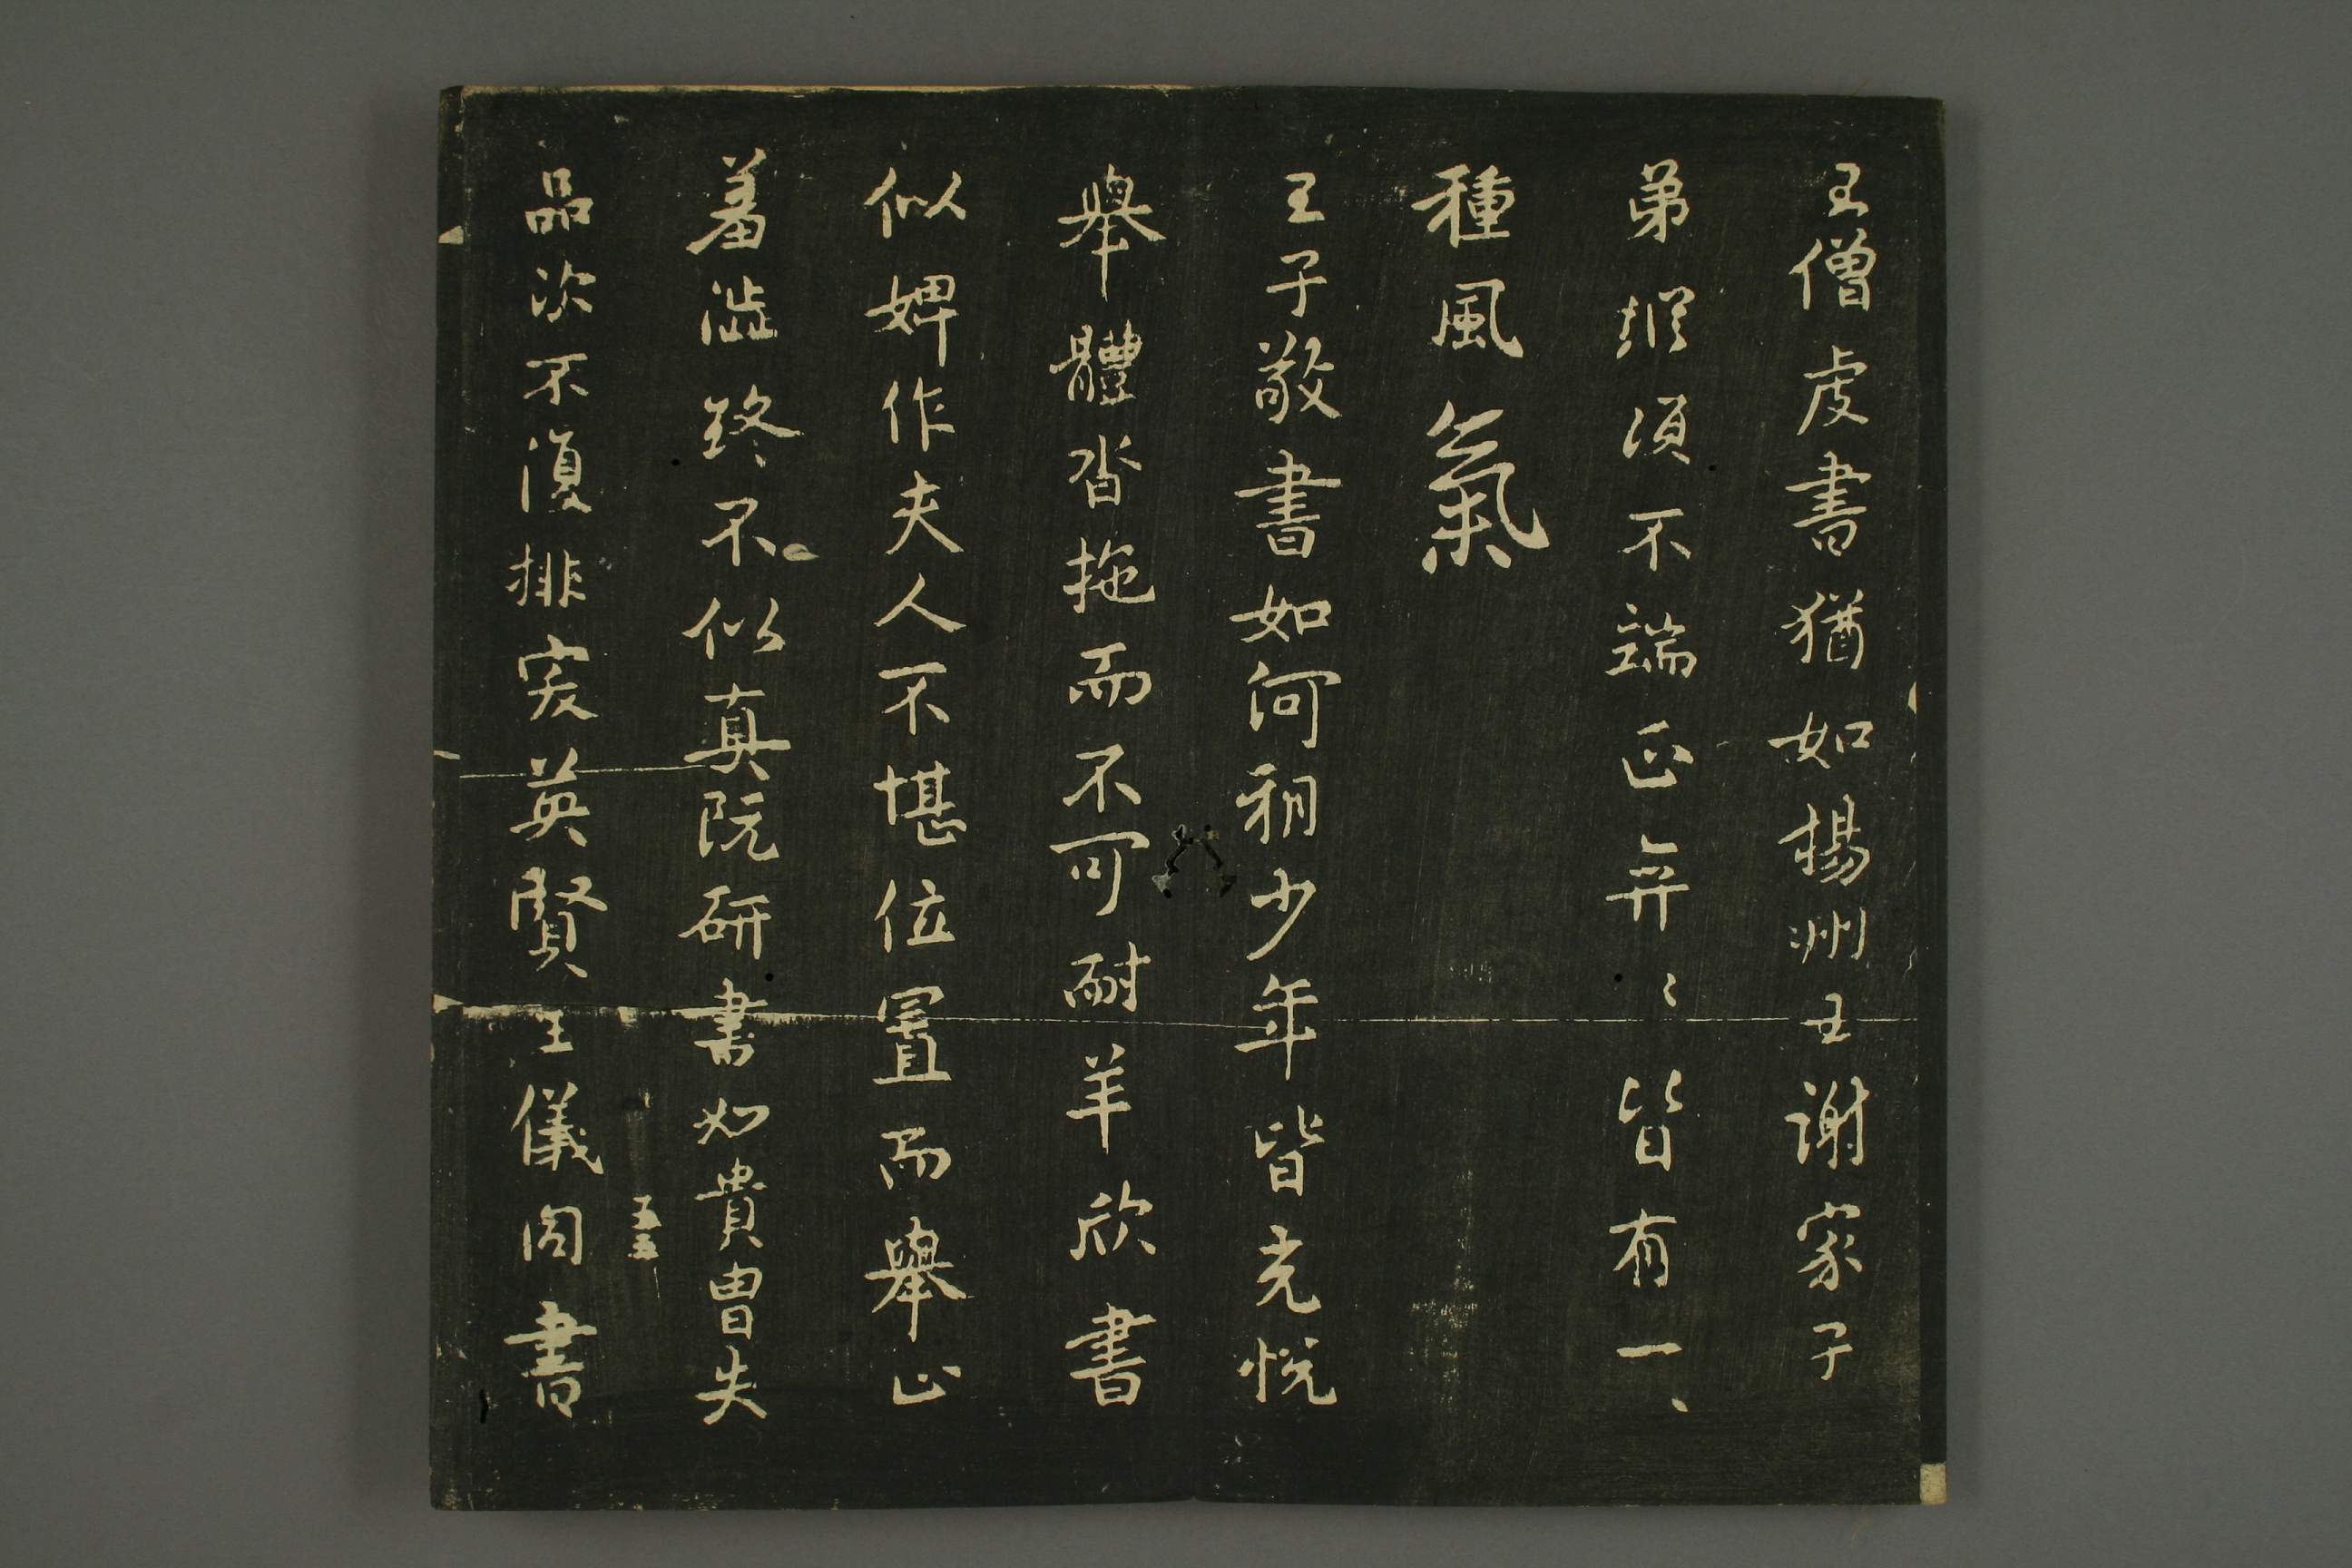 王僧虔書猶如楊州王謝家子
弟縱須不端正弈〻皆有一
種風氣
王子敬書如何朔少年皆充悅
舉體沓拖而不可耐羊欣書
似婢作夫人不堪位置而舉止
羞澁終不似真阮研書如貴胄失
品次不復排突英賢王儀同書
五五